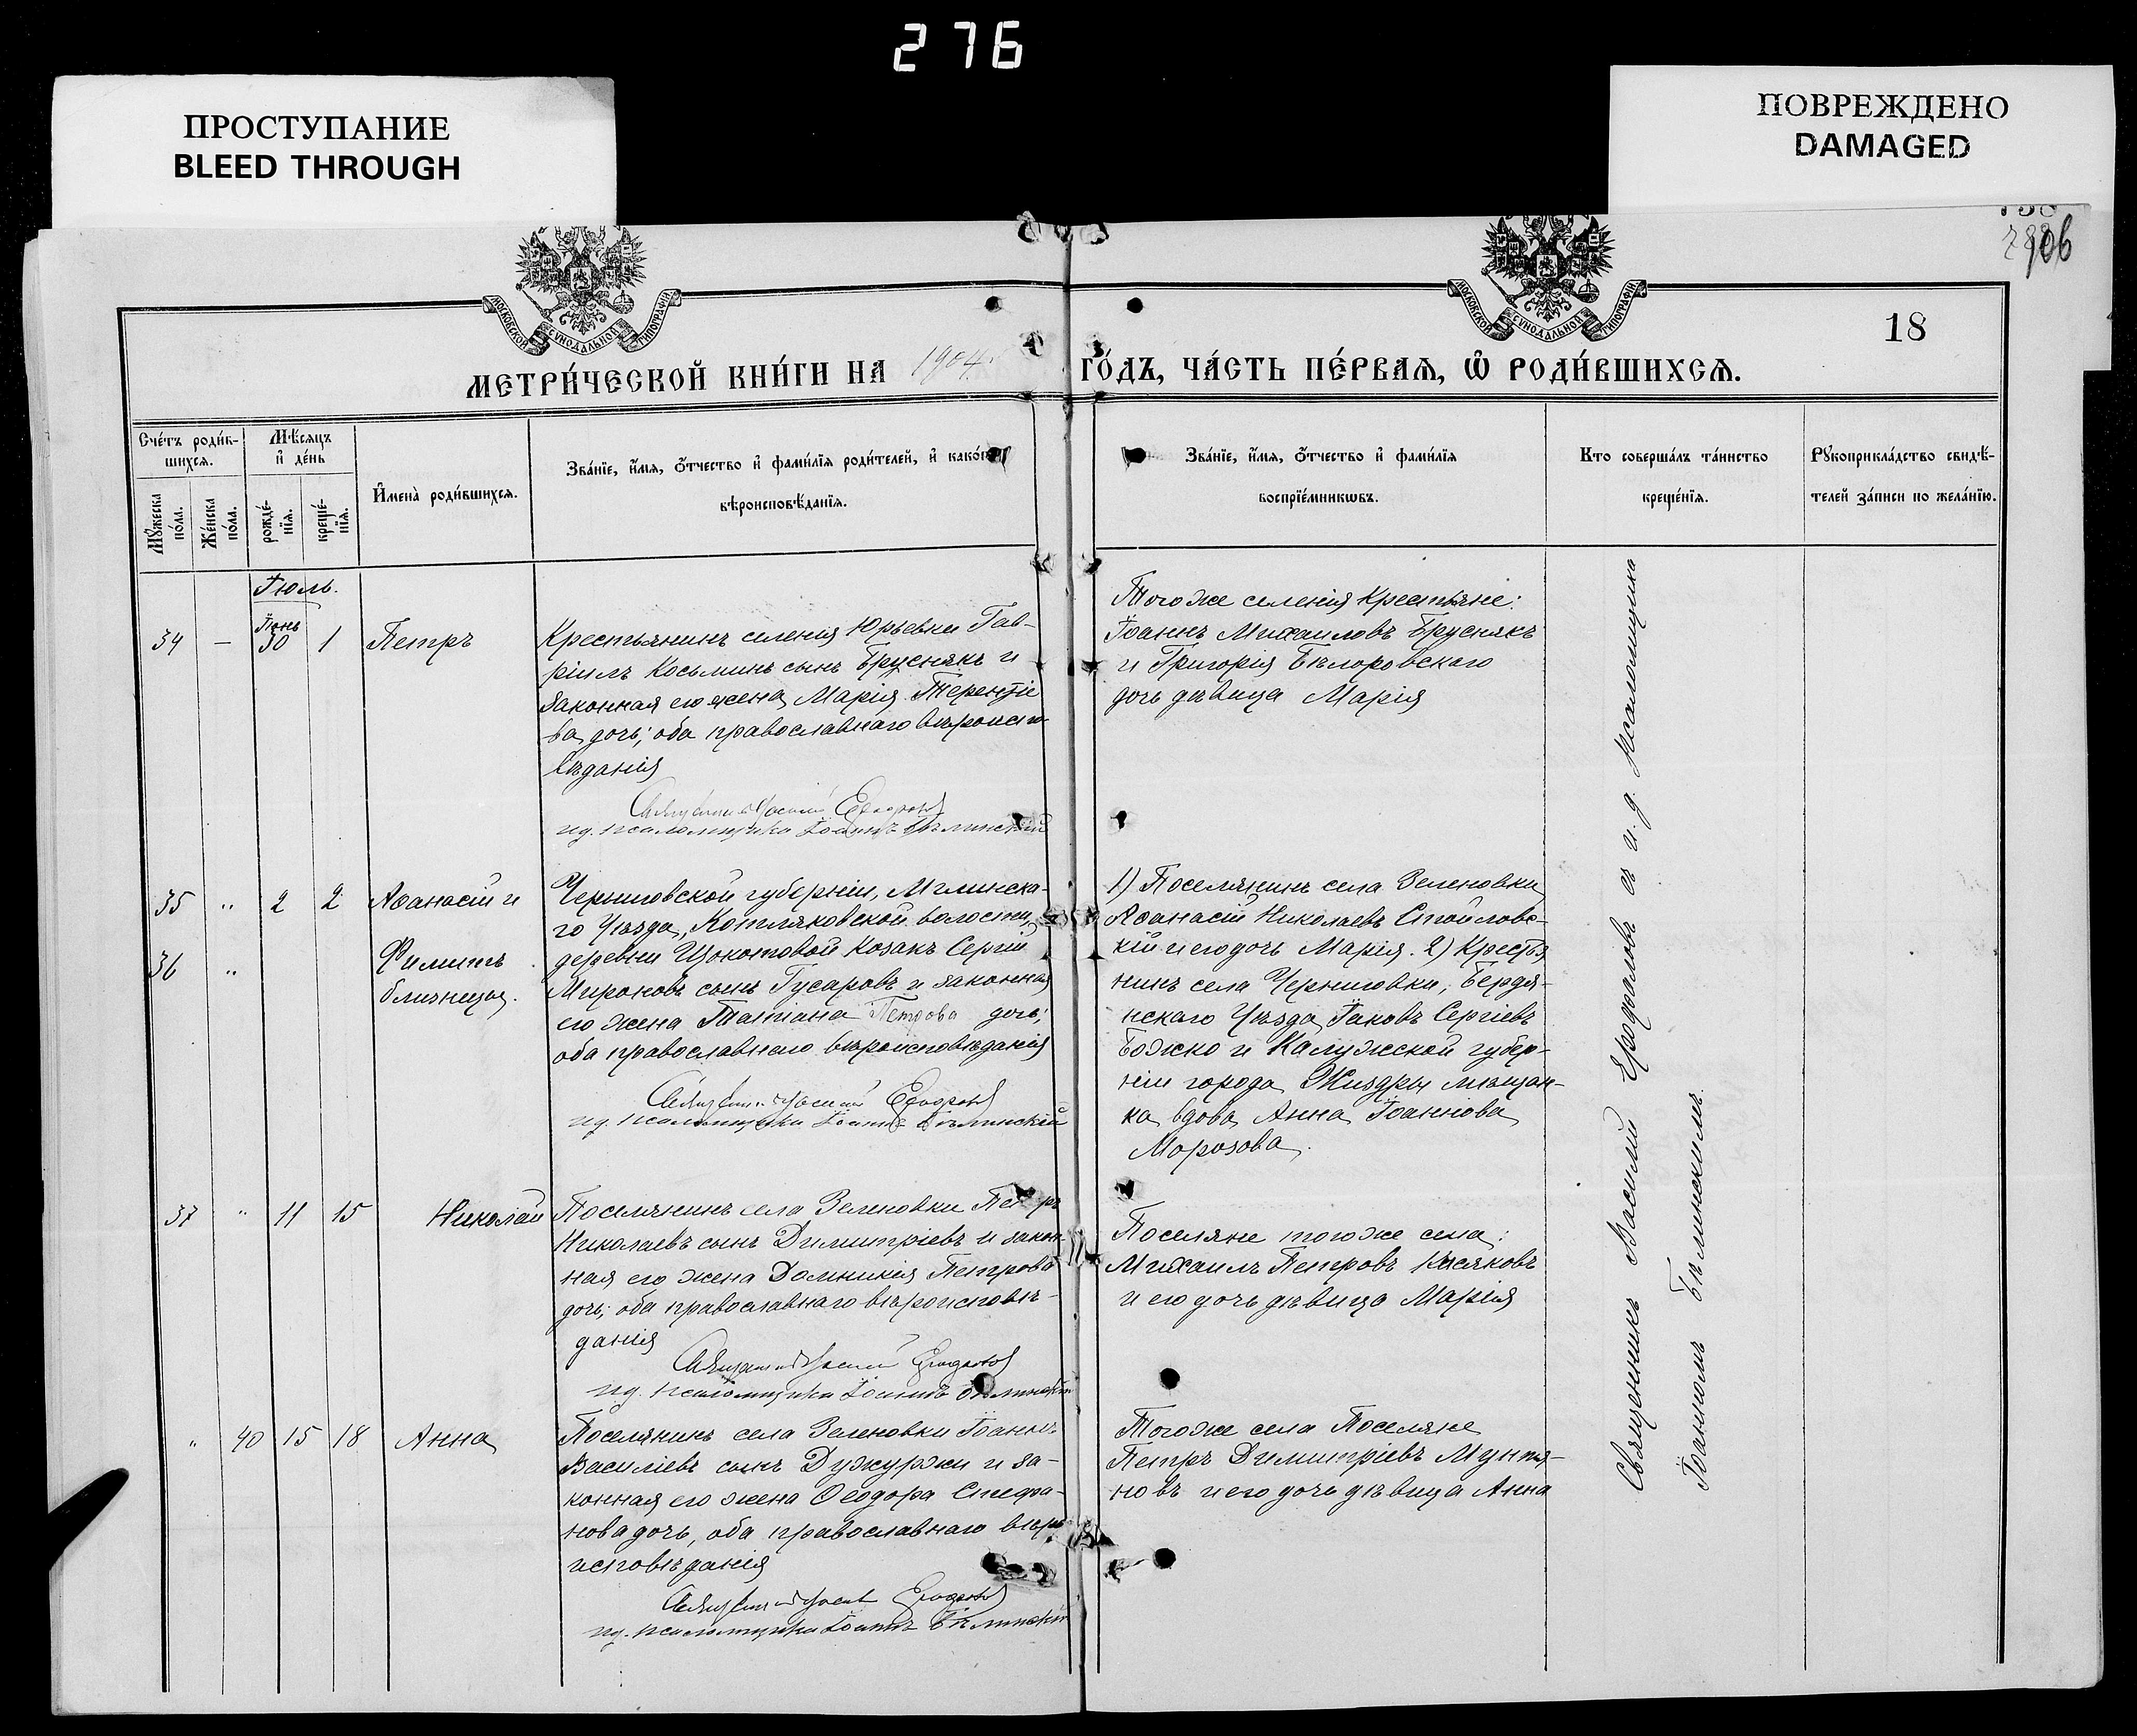 276
ПРОСТУПАНИЕ
BLEED THROUGH
ПОВРЕЖДЕНО
DAMAGED
106
18
МОСКОВСКОЙ СУНОДАЛЬНОЙ ТИПОГРАФІИ
МОСКОВСКОЙ СУНОДАЛЬНОЙ ТИПОГРАФІИ
МЕТРИ́ЧЕСКОЙ КНИ́ГИ НА 1904 ГО́ДЪ, ЧА́СТЬ ПЕ́РВАѦ, Ѡ҆ РОДИ́ВШИХСѦ.
Сче́тъ роди́в-
шихсѧ.
Мꙋ́жеска по́ла.
Же́нска по́ла.
Мѣ́сяцъ
и҆ де́нь
рожде́-
нїѧ.
креще́-
нїѧ.
И҆мена̀ роди́вшихсѧ.
Зва́нїе, и҆́мѧ, ѻ҆́тчество и҆ фами́лїѧ роди́телей, и҆ како́гѡ
вѣроисповѣ́данїѧ.
Зва́нїе, и҆́мѧ, ѻ҆́тчество и҆ фами́лїѧ
воспрїе́мникѡвъ.
Кто соверша́лъ та́инство
креще́нїѧ.
Рꙋкоприкла́дство свидѣ́-
телей за́писи по жела́нїю.
Іюль.
34 – Іюнь 30 1 Петръ
Крестьянинъ селенія Юрьевки Гав-
ріилъ Косьминъ сынъ Бруснякъ и
законная его жена Марія Терентіе
ва дочь; оба православнаго вѣроиспо-
вѣданія
Священникъ Василій Ерофаловъ
ид. псаломщика Іоаннъ Бѣлинскій
Того же селенія крестьяне:
Іоаннъ Михаиловъ Бруснякъ
и Григорія Бѣлоровскаго
дочь дѣвица Марія
35 " 2 2 Аѳанасій и
36 " Филипъ
близнецы.
Черниговской губерніи, Мглинска-
го Уѣзда, Котляковской волости,
деревни Цокотовой козакъ Сергій
Мироновъ сынъ Гусаровъ и законная
его жена Татіана Петрова дочь;
оба православнаго вѣроисповѣданія
Священникъ Василій Ерофаловъ
ид. псаломщика Іоаннъ Бѣлинскій
1) Поселянинъ села Зеленовки
Аѳанасій Николаевъ Стойловс-
кій и его дочь Марія. 2) Крестья
нинъ села Черниговки, Бердя-
нскаго Уѣзда Іаковъ Сергіевъ
Божко и Калужской губер-
ніи города Жиздры мѣщан-
ка вдова Анна Іоаннова
Морозова.
37 " 11 15 Николай
Поселянинъ села Зеленовки Петръ
Николаевъ сынъ Димитріевъ и закон-
ная его жена Домникія Петрова
дочь; оба православнаго вѣроисповѣ-
данія
Священникъ Василій Ерофаловъ
ид. псаломщика Іоаннъ Бѣлинскій
Поселяне того же села:
Михаилъ Петровъ Касяковъ
и его дочь дѣвица Марія
" 40 15 18 Анна
Поселянинъ села Зеленовки Іоаннъ
Василіевъ сынъ Дужуржи и за-
конная его жена Ѳеодора Стефа-
нова дочь, оба православнаго вѣро
исповѣданія
Священникъ Василій Ерофаловъ
ид. псаломщика Іоаннъ Бѣлинскій
Того же села Поселяне
Петръ Димитріевъ Мунтя-
новъ и его дочь дѣвица Анна
Священникъ Василій Ерофаловъ съ и. д. псаломщика
Іоанномъ Бѣлинскимъ.